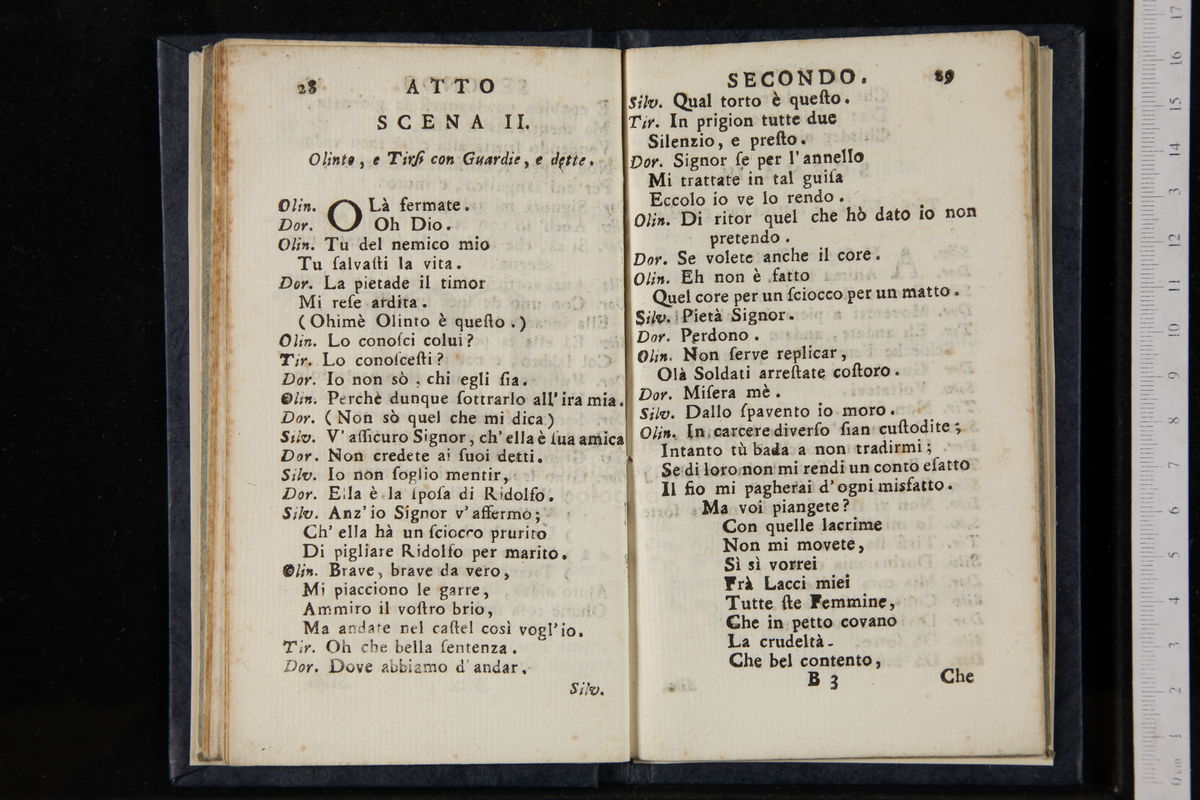 28 ATTO
SCENA II.
Olinto, e Tirſi con Guardie, e dette.
Olin. OLà fermate.
Dor. Oh Dio.
Olin. Tu del nemico mio
Tu ſalvaſti la vita.
Dor. La pietade il timor
Mi reſe ardita.
(Ohimè Olinto è queſto.)
Olin. Lo conoſci colui?
Tir. Lo conoſceſti?
Dor. Io non sò, chi egli ſia.
Olin. Perchè dunque ſottrarlo all'ira mia.
Dor. (Non sò quel che mi dica)
Silv. V'aſſicuro Signor, ch'ella è ſua amica
Dor. Non credete ai ſuoi detti.
Silv. Io non ſoglio mentir,
Dor. Ella è la ſpoſa di Ridolfo.
Silv. Anz'io Signor v'affermo;
Ch'ella hà un ſciocco prurito
Di pigliare Ridolfo per marito.
Olin. Brave, brave da vero,
Mi piacciono le garre,
Ammiro il voſtro brio,
Ma andate nel caſtel così vogl'io.
Tir. Oh che bella ſentenza.
Dor. Dove abbiamo d'andar.
Silv.
SECONDO. 29
Silv. Qual torto è queſto.
Tir. In prigion tutte due
Silenzio, e preſto.
Dor. Signor ſe per l'annello
Mi trattate in tal guiſa
Eccolo io ve lo rendo.
Olin. Di ritor quel che hò dato io non
pretendo.
Dor. Se volete anche il core.
Olin. Eh non è fatto
Quel core per un ſciocco per un matto.
Silv. Pietà Signor.
Dor. Perdono.
Olin. Non ſerve replicar,
Olà Soldati arreſtate coſtoro.
Dor. Miſera mè.
Silv. Dallo ſpavento io moro.
Olin. In carcere diverſo ſian cuſtodite;
Intanto tù bada a non tradirmi;
Se di loro non mi rendi un conto eſatto
Il fio mi pagherai d'ogni misfatto.
Ma voi piangete?
Con quelle lacrime
Non mi movete,
Sì sì vorrei
Frà Lacci miei
Tutte ſte Femmine,
Che in petto covano
La crudeltà.
Che bel contento,
B 3 Che
0 cm 1 2 3 4 5 6 7 8 9 10 11 12 13 14 15 16 17